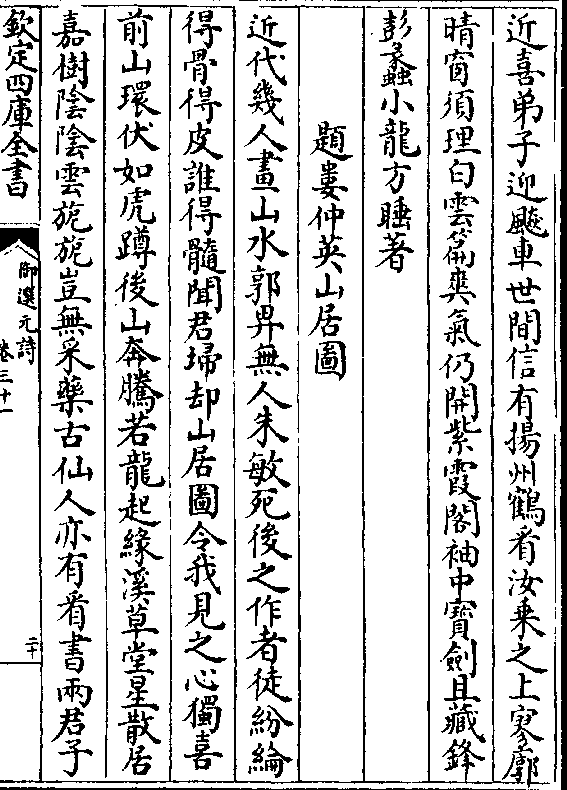 近喜弟子迎飇車世間信有揚州鶴看汝乗之上寥廓
晴窗須理白雲篇爽氣仍開紫霞閣袖中寳劍且藏鋒
彭蠡小龍方睡著
題婁仲英山居圖
近代幾人畫山水郭畀無人朱敏死後之作者徒紛綸
得骨得皮誰得髓聞君埽却山居圖令我見之心獨喜
前山環伏如虎蹲後山奔騰若龍起緣溪草堂星散居
嘉樹陰陰雲旎旎豈無采藥古仙人亦有看書兩君子
欽定四庫全書
御選元詩
卷三十一
二十